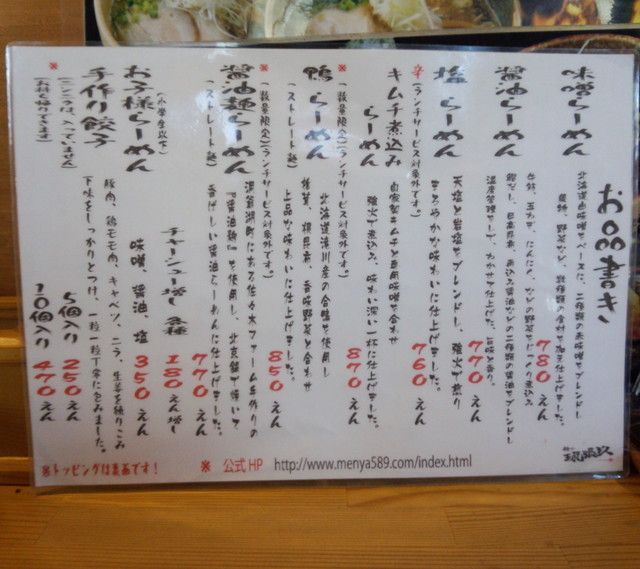 お品書き
味噌らーめん
北海道白味噌をベースに、二種類の赤味噌をブレンドし
780えん
醤油らーめん
台船、玉ねぎ、にんにく、などの野菜でじっくり煮込み
770えん
塩 らーめん
天塩と岩塩をブレンドし、強火で煽り
まろやかな味わいに仕上げました。
760えん
辛
(ランチサービス対象外です。)
キムチ煮込み
らーめん
自家製キムチと専用味噌を合わせ
強火で煮込み、味わい深い一杯に仕上げました。
870えん
※(数量限定)(ランチサービス対象外です。)
鴨 らーめん
(ストレート麺)
北海道滝川産の合鴨を使用し
椎茸、根昆布、香味野菜と合わせ
上品な味わいに仕上げました。
850えん
※(数量限定)(ランチサービス対象外です。)
醤油麺らーめん
(ストレート麺)
『醤油麺』を使用し、北京鍋で焼いて
香ばしい醤油らーめんに仕上げました。
770えん
チャーシュー増し 各種
180えん増し
(小学生以下)
お子様らーめん
味噌、醤油、塩
350えん
※手作り餃子
(ニンニクは、入っていません)
(お持ち帰りできます)
豚肉、鶏モモ肉、キャベツ、ニラ、生姜を練りこみ
下味をしっかりとつけ、一粒一粒丁寧に包みました。
5個入り 250えん
10個入り 470えん
※トッピングは裏面です!
※ 公式HP http://www.menya589.com/index.html